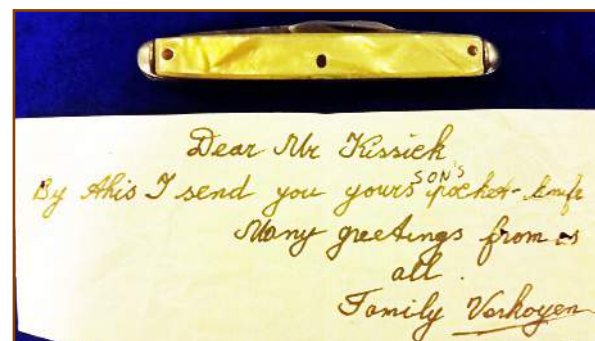 Dear Mr Kissick
By this I send you yours SON'S pocket-knife
Many greetings from us
all.
Family Verhoyen